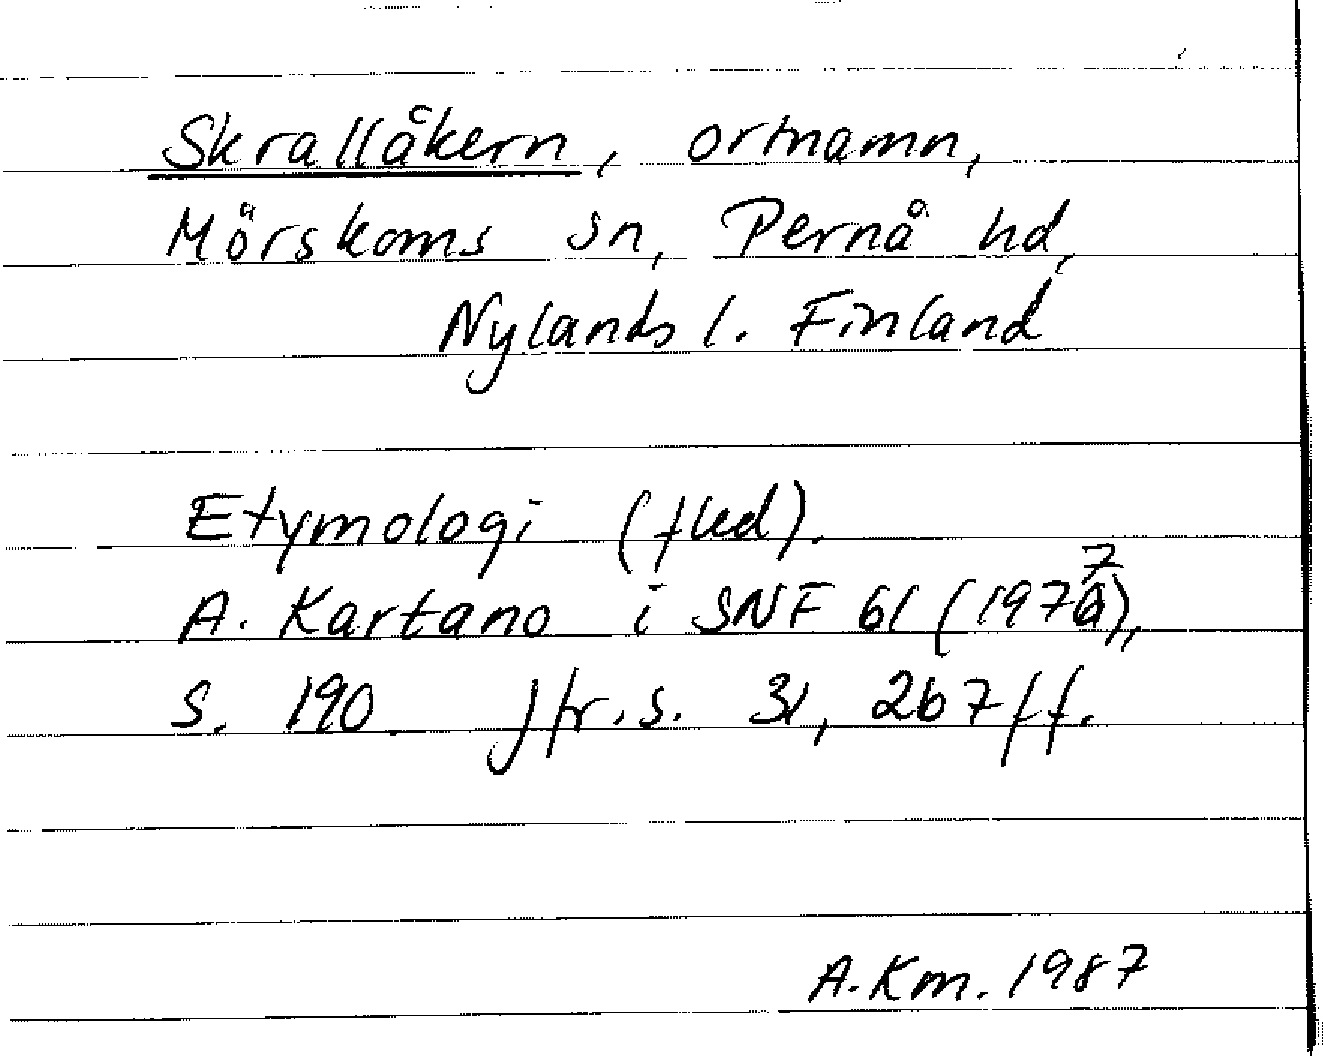 Skrallåkern, ortnamn,
Mörskoms sn, Pernå hd,
Nylands l. Finland
Etymologi (fled).
A. Kartano i SNF 61 (1977),
s. 190 Jfr. s. 31, 267 ff.
A. Km. 1987